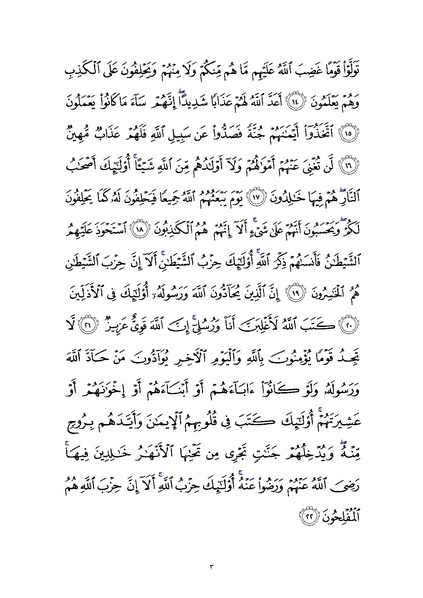 تَوَلَّوۡاْ قَوۡمًا غَضِبَ ٱللَّهُ عَلَيۡهِم مَّا هُم مِّنكُمۡ وَلَا مِنۡهُمۡ وَيَحۡلِفُونَ عَلَى ٱلۡكَذِبِ
وَهُمۡ يَعۡلَمُونَ ١٤ أَعَدَّ ٱللَّهُ لَهُمۡ عَذَابٗا شَدِيدًاۖ إِنَّهُمۡ سَآءَ مَا كَانُواْ يَعۡمَلُونَ
١٥ ٱتَّخَذُوٓاْ أَيۡمَٰنَهُمۡ جُنَّةٗ فَصَدُّواْ عَن سَبِيلِ ٱللَّهِ فَلَهُمۡ عَذَابٞ مُّهِينٞ
١٦ لَّن تُغۡنِيَ عَنۡهُمۡ أَمۡوَٰلُهُمۡ وَلَآ أَوۡلَٰدُهُم مِّنَ ٱللَّهِ شَيۡـًٔاۚ أُوْلَٰٓئِكَ أَصۡحَٰبُ
ٱلنَّارِۖ هُمۡ فِيهَا خَٰلِدُونَ ١٧ يَوۡمَ يَبۡعَثُهُمُ ٱللَّهُ جَمِيعٗا فَيَحۡلِفُونَ لَهُۥ كَمَا يَحۡلِفُونَ
لَكُمۡ وَيَحۡسَبُونَ أَنَّهُمۡ عَلَىٰ شَيۡءٍۚ أَلَآ إِنَّهُمۡ هُمُ ٱلۡكَٰذِبُونَ ١٨ ٱسۡتَحۡوَذَ عَلَيۡهِمُ
ٱلشَّيۡطَٰنُ فَأَنسَىٰهُمۡ ذِكۡرَ ٱللَّهِۚ أُوْلَٰٓئِكَ حِزۡبُ ٱلشَّيۡطَٰنِۚ أَلَآ إِنَّ حِزۡبَ ٱلشَّيۡطَٰنِ
هُمُ ٱلۡخَٰسِرُونَ ١٩ إِنَّ ٱلَّذِينَ يُحَآدُّونَ ٱللَّهَ وَرَسُولَهُۥٓ أُوْلَٰٓئِكَ فِي ٱلۡأَذَلِّينَ
٢٠ كَتَبَ ٱللَّهُ لَأَغۡلِبَنَّ أَنَا۠ وَرُسُلِيٓۚ إِنَّ ٱللَّهَ قَوِيٌّ عَزِيزٞ ٢١ لَّا
تَجِدُ قَوۡمٗا يُؤۡمِنُونَ بِٱللَّهِ وَٱلۡيَوۡمِ ٱلۡأٓخِرِ يُوَآدُّونَ مَنۡ حَآدَّ ٱللَّهَ
وَرَسُولَهُۥ وَلَوۡ كَانُوٓاْ ءَابَآءَهُمۡ أَوۡ أَبۡنَآءَهُمۡ أَوۡ إِخۡوَٰنَهُمۡ أَوۡ
عَشِيرَتَهُمۡۚ أُوْلَٰٓئِكَ كَتَبَ فِي قُلُوبِهِمُ ٱلۡإِيمَٰنَ وَأَيَّدَهُم بِرُوحٖ
مِّنۡهُۖ وَيُدۡخِلُهُمۡ جَنَّٰتٖ تَجۡرِي مِن تَحۡتِهَا ٱلۡأَنۡهَٰرُ خَٰلِدِينَ فِيهَاۚ
رَضِيَ ٱللَّهُ عَنۡهُمۡ وَرَضُواْ عَنۡهُۚ أُوْلَٰٓئِكَ حِزۡبُ ٱللَّهِۚ أَلَآ إِنَّ حِزۡبَ ٱللَّهِ هُمُ
ٱلۡمُفۡلِحُونَ ٢٢
٣